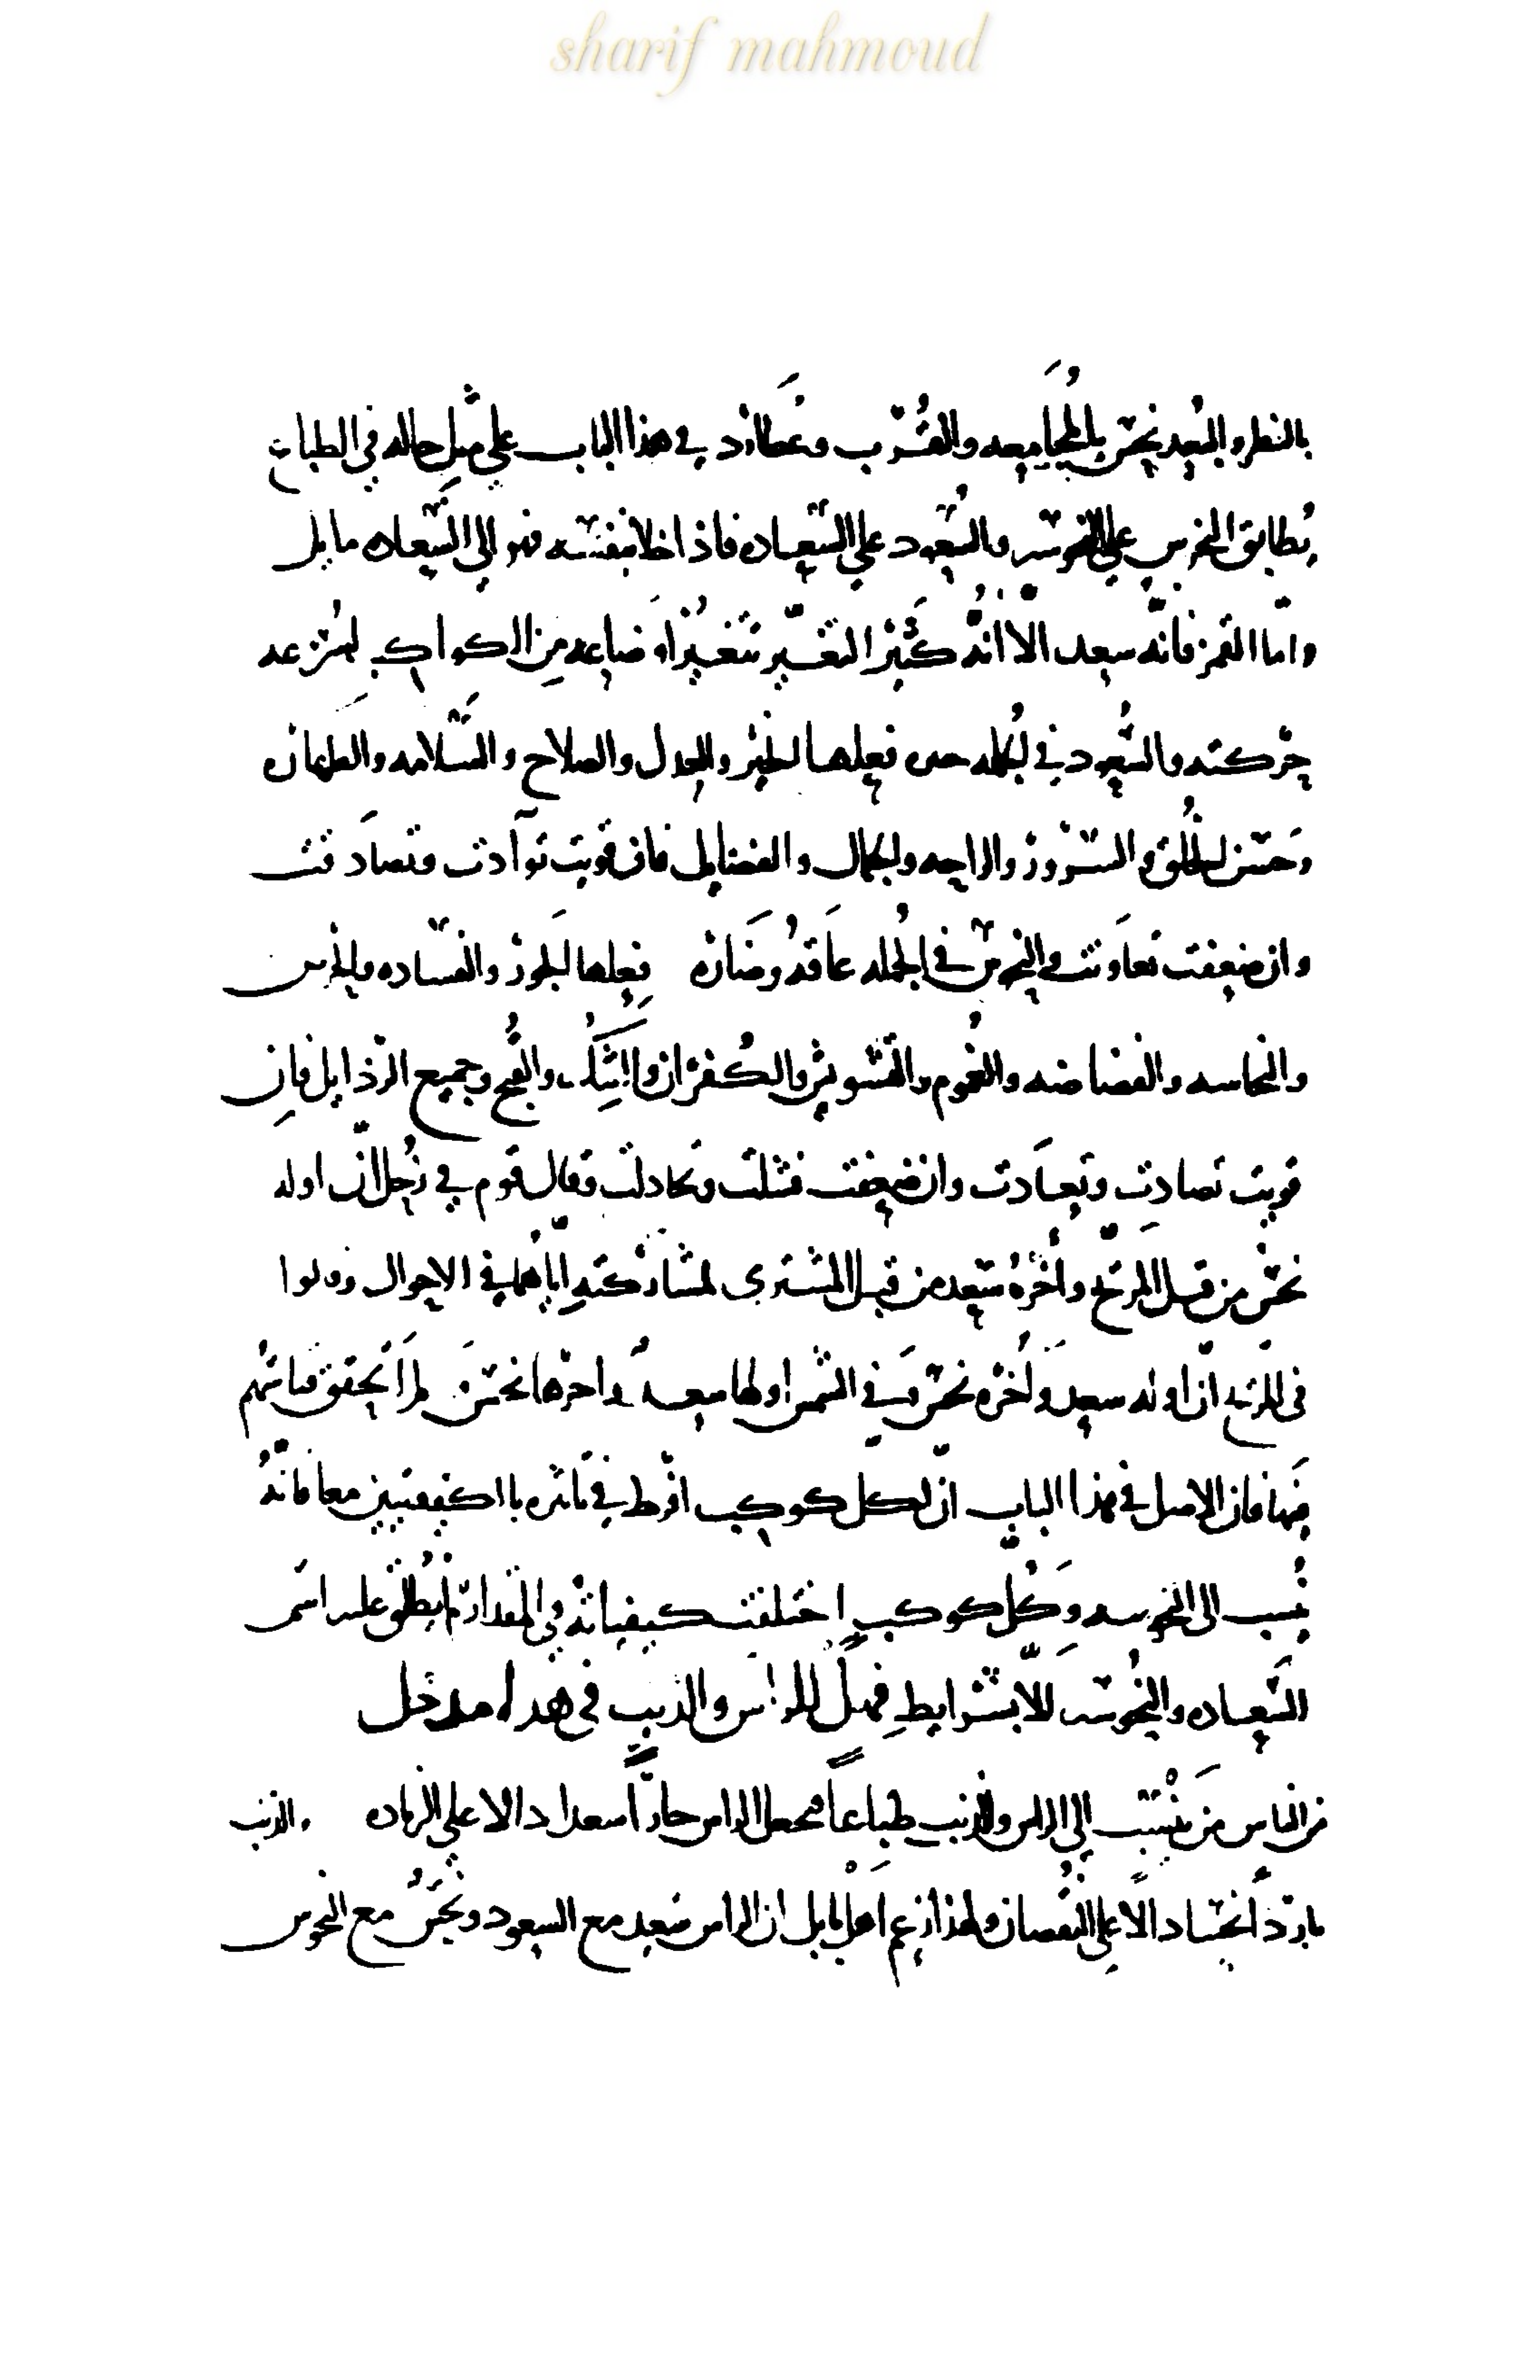 sharif mahmoud
بالنظر والبُعد نحسٌ بالمُجَامعه والقُرب وعُطَارد في هذا الباب على مثل حاله في الطباع
يُطابق النحوس على النحوسه والسُّعود على السّعاده فاذا خلا بنفسه فهو الى السّعاده مايل
واما القمر فانّه سعد الّا انّهُ كَثير التغيّر متغيرا صاعد من الكواكب لسرعه
حركته والسُّعود في الجُمله فعلها الخير والعدل والصلاح والسّلامه والطهاره
وحسن الخُلق والسرور والراحه والجمال والفضايل فان قويت توآدت وتصادقت
وان ضعفت تعاونت والنحوس في الجُمله فعلها الجَور والفساد والحرص
والنحاسه والفضاضه والغموم والتشويش والكُفران والقُبح وجميع الرذايل فان
قويت تصادت وتعادت وان ضعفت فشلت وتخادلت وقال قوم في زحل ان اوله
نحس من قبل المرّيخ وآخرهُ سعد من قبل المشترى لمشاركته اياهما في الاحوال وقالوا
في المريخ انّ اوله سعد وآخره نحس وفي الشمس اولها سعد واخرها نحس لم اتحقق قياسهم
فيها فان الاصل في هذا الباب انّ كل كوكب افرط في تاثيره بالكيفيتين معا فانهُ
يُنسب الى النحوسه وكُل كوكب اختلفت كيفياتهُ في المقدار يُطلق عليه اسم
السّعاده والنحُوسه الّا بشرايط فهل للراس والذنب في هذا مدخل
من الناس من ينسب الى الراس والذنب طباعاً فجعل الراس حارّا سعدا دالا على الزياده والذنب
باردا نحسا دالا على النقصان ولهذا زعم اهل بابل ان الراس سعد مع السعود ونحسٌ مع النحوس